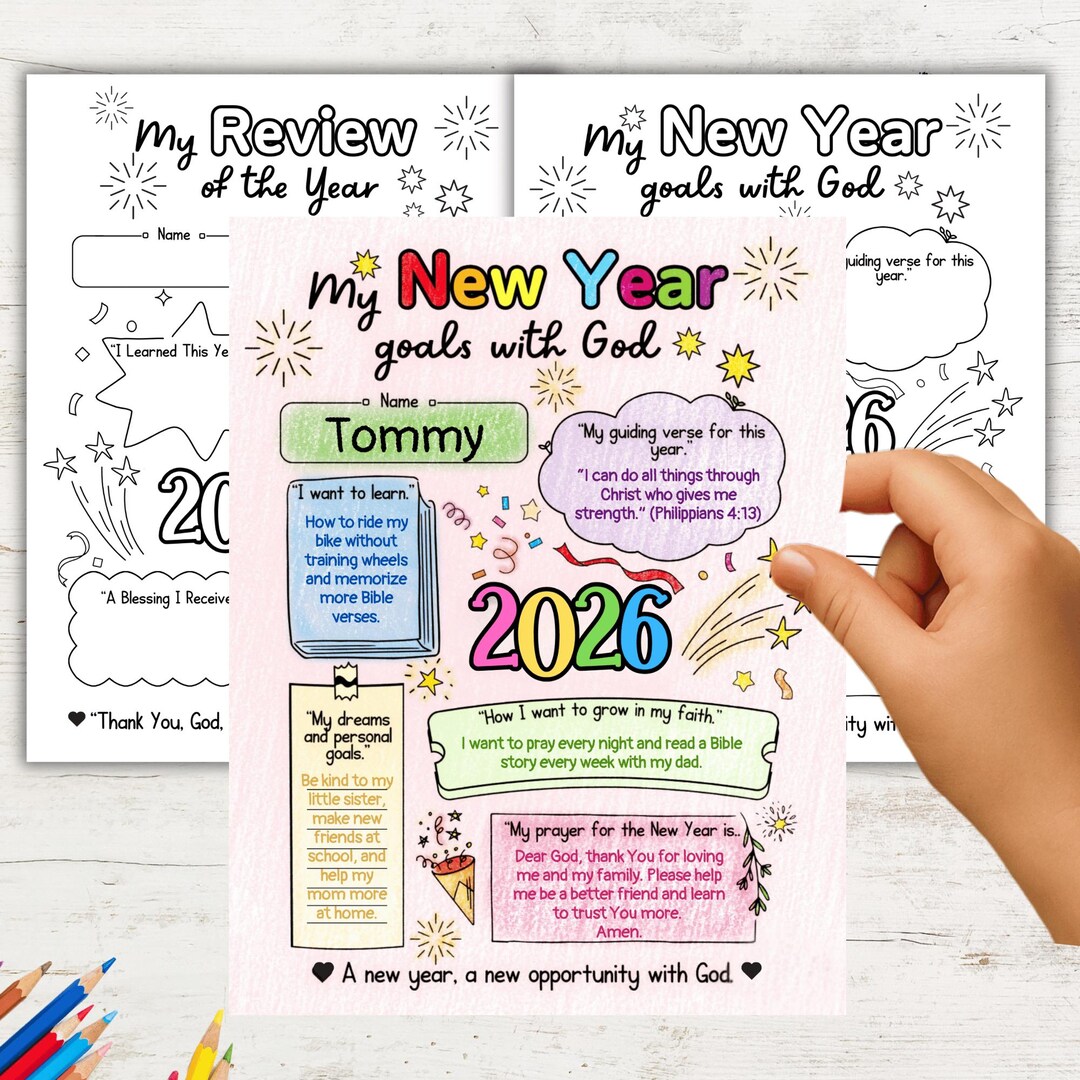 My Review
of the Year
Name
"I Learned This Ye
20
"A Blessing I Receive
"Thank You, God,
My New Year
goals with God
guiding verse for this
year."
26
ity wit
My New Year
goals with God
Name
Tommy
"My guiding verse for this
year."
"I can do all things through
Christ who gives me
strength." (Philippians 4:13)
"I want to learn."
How to ride my
bike without
training wheels
and memorize
more Bible
verses.
2026
"My dreams
and personal
goals."
Be kind to my
little sister,
make new
friends at
school, and
help my
mom more
at home.
"How I want to grow in my faith."
I want to pray every night and read a Bible
story every week with my dad.
"My prayer for the New Year is..
Dear God, thank You for loving
me and my family. Please help
me be a better friend and learn
to trust You more.
Amen.
A new year, a new opportunity with God.